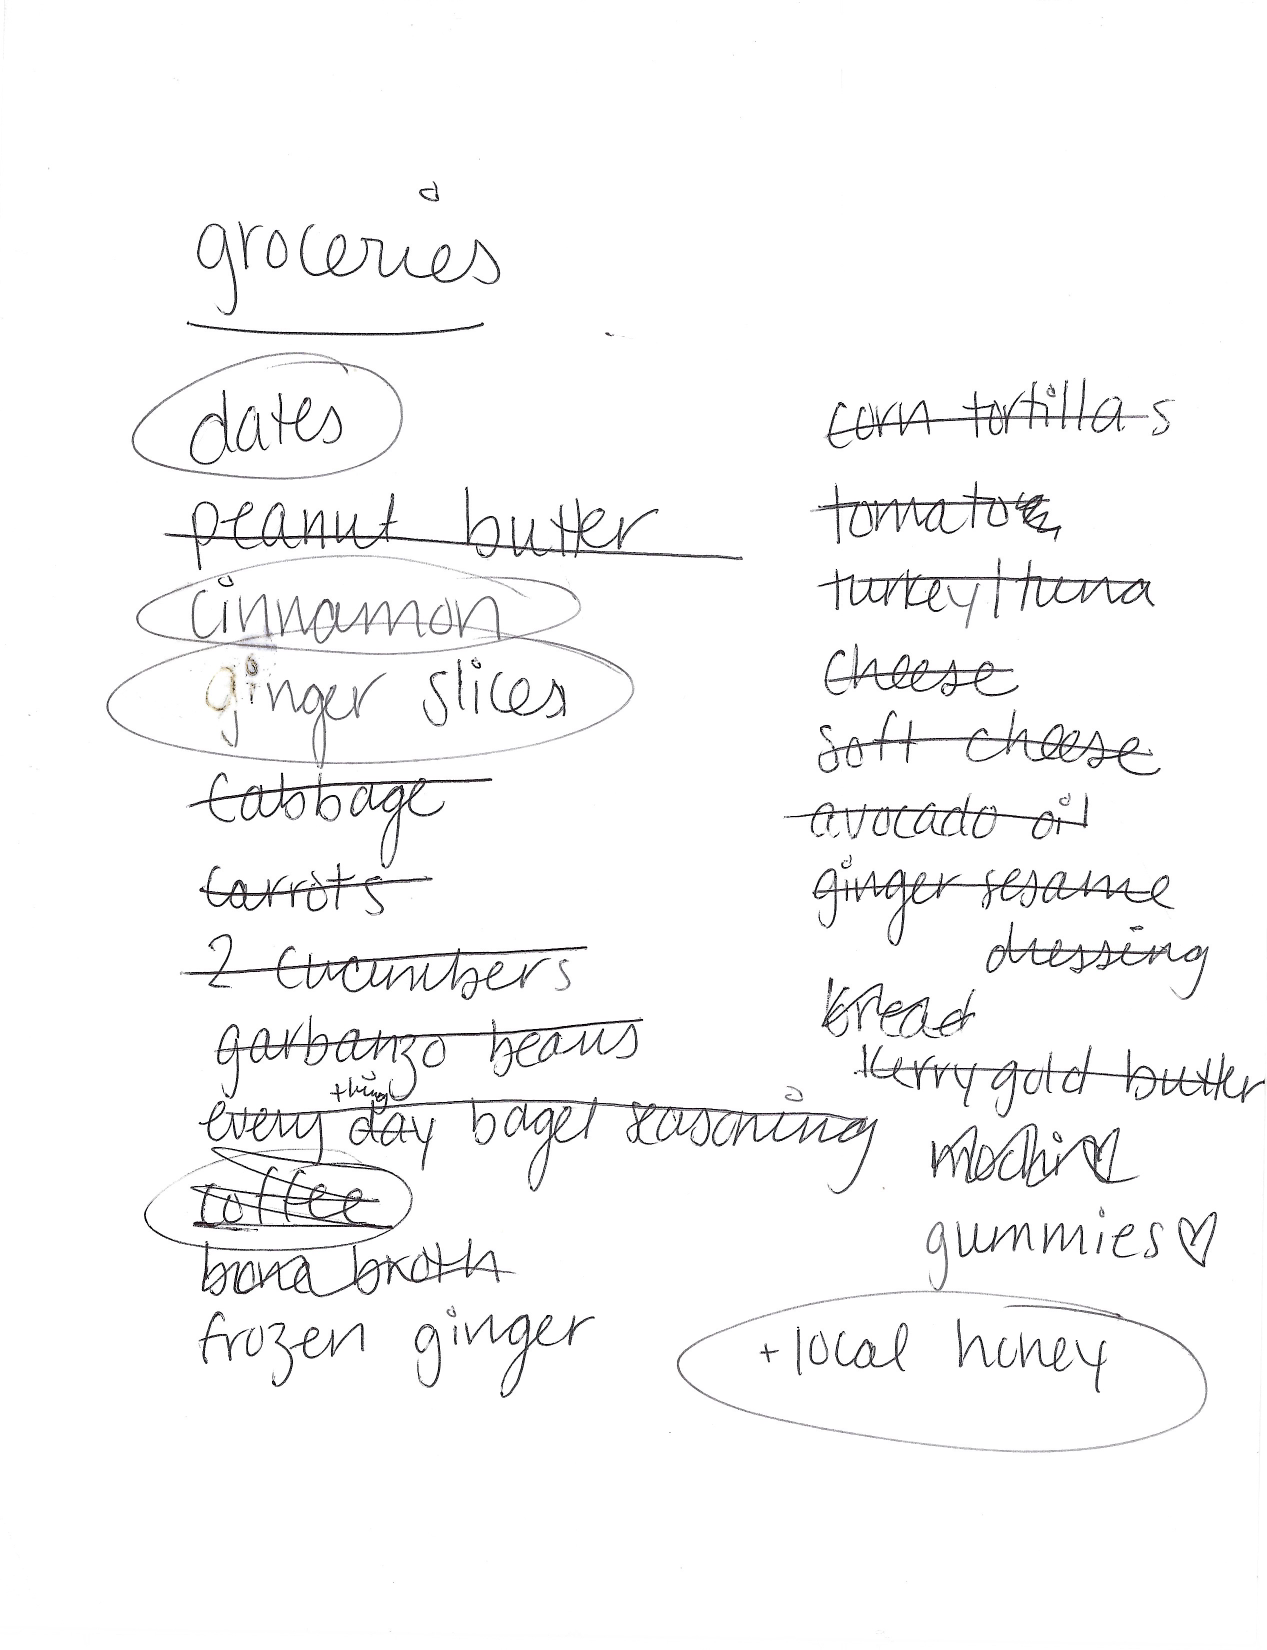 groceries
dates
peanut butter
cinnamon
ginger slices
cabbage
carrots
2 cucumbers
garbanzo beans
thing
every day bagel seasoning
coffee
bone broth
frozen ginger
corn tortillas
tomato
turkey/tuna
cheese
soft cheese
avocado oil
ginger sesame
dressing
bread
kerrygold butter
mochi ♡
gummies ♡
+ local honey